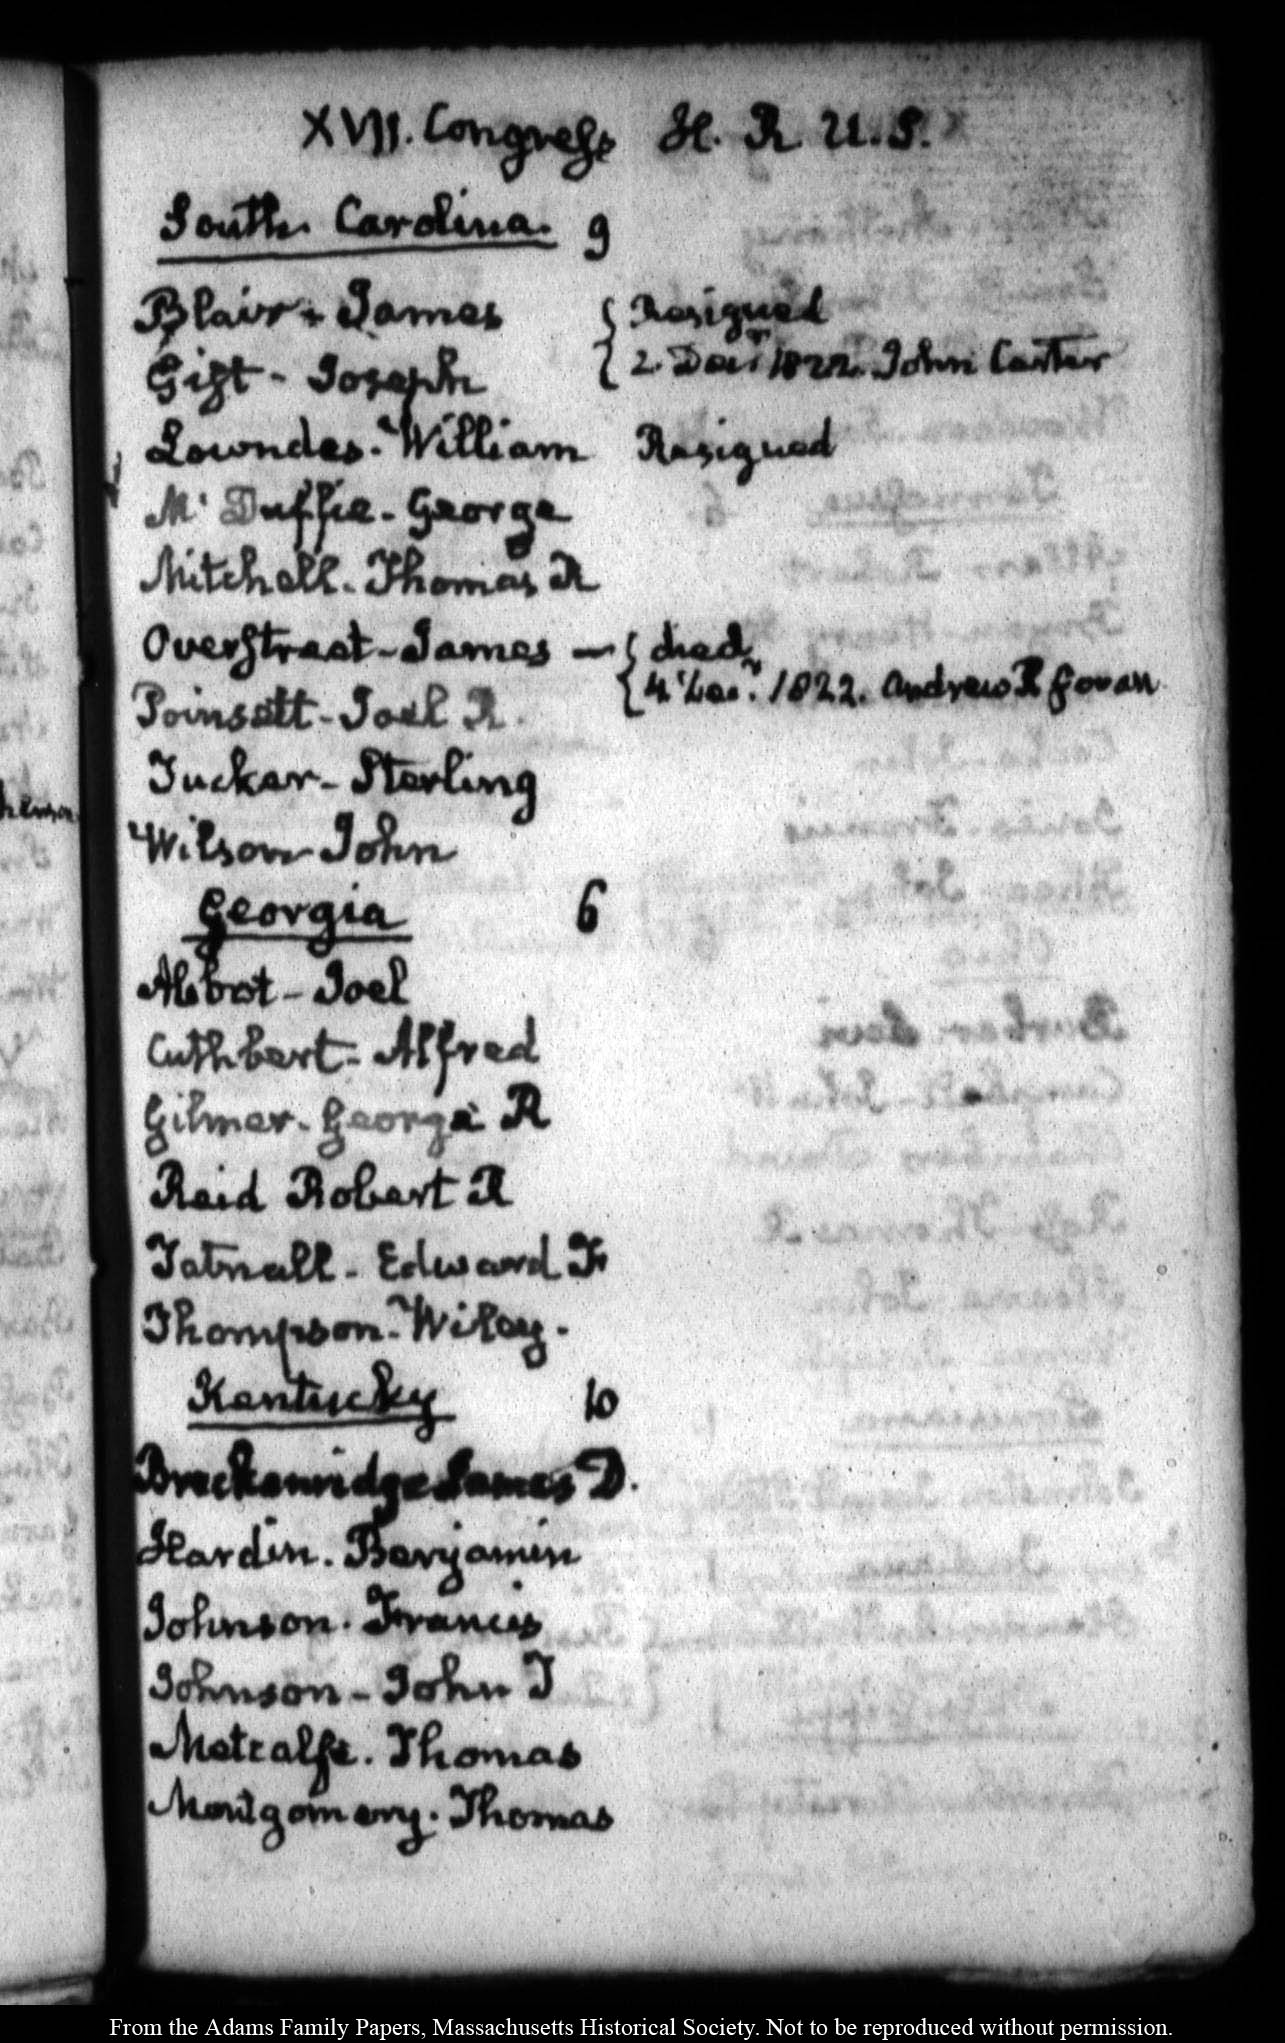 XVII. Congress H. R. U.S.
South. Carolina. 9
Blair - James { Resigned
Gist - Joseph { 2. Decr. 1822. John Carter
Lowndes. William Resigned
Mc Duffie - George
Mitchell. Thomas R
Overstreet - James — { died
Poinsett - Joel R. { 4. Decr. 1822. Andrew R Govan
Tucker - Sterling
Wilson John
Georgia 6
Abbot - Joel
Cuthbert - Alfred
Gilmer - George R
Reid Robert R
Tatnall - Edward F
Thompson - Wiley.
Kentucky 10
Breckenridge James D.
Hardin. Benjamin
Johnson. Francis
Johnson - John T
Metcalfe. Thomas
Montgomery. Thomas
From the Adams Family Papers, Massachusetts Historical Society. Not to be reproduced without permission.